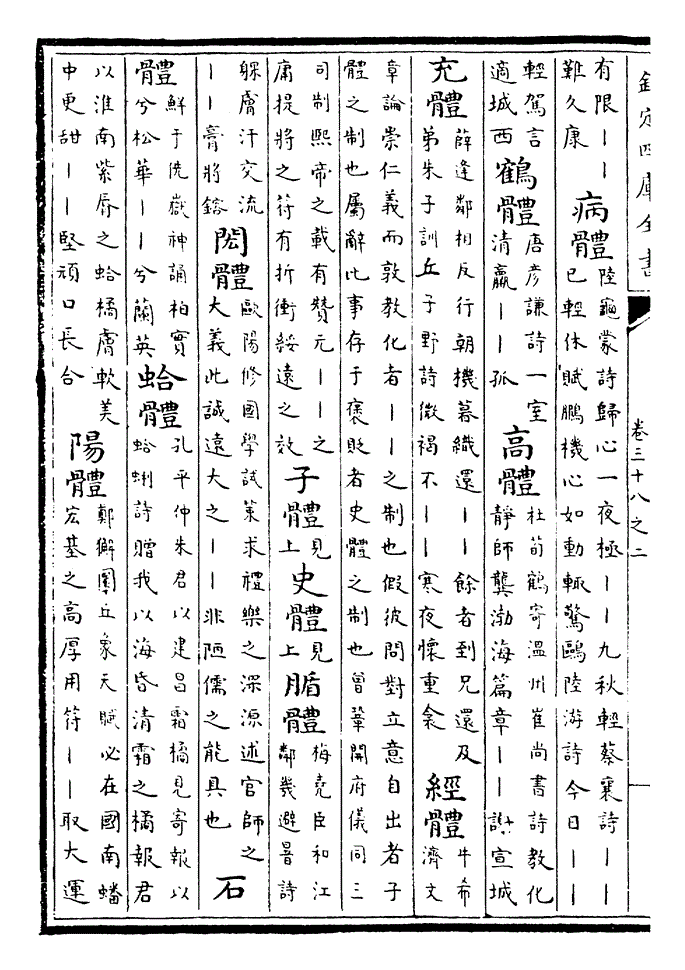 欽定四庫全書 卷三十八之二
有限｜｜
難久康
病體
陸龜蒙詩歸心一夜極｜｜九秋輕蔡襄詩｜｜
已輕休賦鵬機心如動輒驚鷗陸游詩今日｜｜
輕駕言
適城西
鶴體
唐彦謙詩一室
清羸｜｜孤
高體
杜荀鶴寄溫州崔尚書詩教化
靜師龔渤海篇章｜｜謝宣城
充體
薛逢鄰相反行朝機暮織還｜｜餘者到兄還及
弟朱子訓丘子野詩微褐不｜｜寒夜懷重衾
經體
牛希
濟文
章論崇仁義而敦教化者｜｜之制也假彼問對立意自出者子
體之制也屬辭比事存于褒貶者史體之制也曾鞏開府儀同三
司制熙帝之載有贊元｜｜之
庸提將之符有折衝綏遠之效
子體
見
上
史體
見
上
腯體
梅堯臣和江
鄰幾避暑詩
躶膚汗交流
｜｜膏將鎔
閎體
歐陽修國學試策求禮樂之深源述官師之
大義此誠遠大之｜｜非陋儒之能具也
石
體
鮮于侁嶽神誦柏實
兮松華｜｜兮蘭英
蛤體
孔平仲朱君以建昌霜橘見寄報以
蛤蜊詩贈我以海昏清霜之橘報君
以淮南紫脣之蛤橘膚軟美
中更甜｜｜堅頑口長合
陽體
鄭獬圜丘象天賦必在國南蟠
宏基之高厚用符｜｜取大運